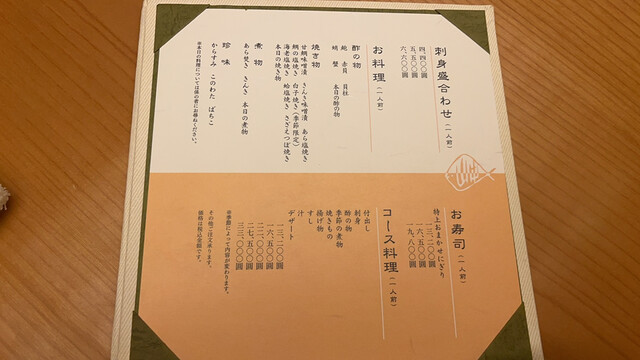 刺身盛合わせ（一人前）
四、四〇〇圓
五、五〇〇圓
六、六〇〇圓
お料理（一人前）
酢の物
鮑　赤貝　貝柱
蛸　蟹　本日の酢の物
焼き物
甘鯛味噌漬　きんき味噌漬　あら塩焼き
鯛の塩焼き　白子焼き（季節限定）
海老塩焼き　蛤塩焼き　さざえつぼ焼き
本日の焼き物
煮物
あら焚き　きんき　本日の煮物
珍味
からすみ　このわた　ばちこ
※本日の料理については係の者にお尋ねください。
お寿司（一人前）
特上おまかせにぎり
一三、二〇〇圓
一六、五〇〇圓
一九、八〇〇圓
コース料理（一人前）
付出し
刺身
酢の物
季節の煮物
焼きもの
揚げ物
すし
汁
デザート
一三、二〇〇圓
一六、五〇〇圓
二二、〇〇〇圓
二七、五〇〇圓
三三、〇〇〇圓
※季節によって内容が変わります。
その他ご注文承ります。
価格は税込金額です。